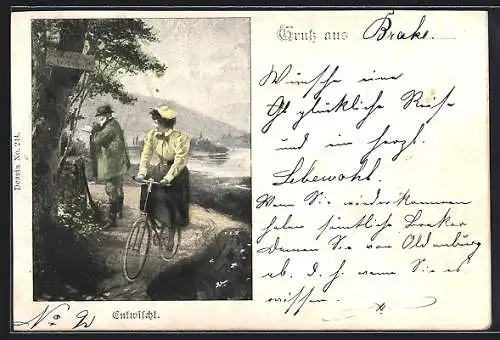 Gruß aus Brake.
Wünsche eine
glückliche Reise
und ein herzl.
Lebewohl.
Wenn Sie wiederkommen
holen sämtliche Braker
Damen Sie von Oldenburg
ab. d. h. wenn Sie es
wissen.
Dessin No. 214.
No 2
Entwischt.